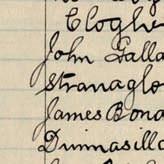 Cloghe
John Galla
Stranaglo
James Bona
Drumnasilla